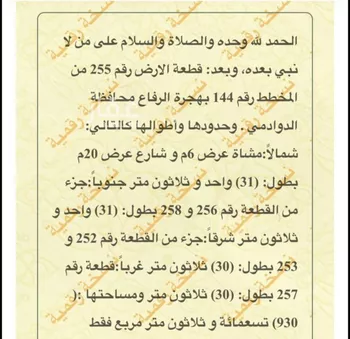 الحمد لله وحده والصلاة والسلام على من لا
نبي بعده، وبعد: قطعة الارض رقم 255 من
المخطط رقم 144 بهجرة الرفاع محافظة
الدوادمي . وحدودها واطوالها كالتالي:
شمالاً:مشاة عرض 6م و شارع عرض 20م
بطول: (31) واحد و ثلاثون متر جنوباً:جزء
من القطعة رقم 256 و 258 بطول: (31) واحد و
ثلاثون متر شرقاً:جزء من القطعة رقم 252 و
253 بطول: (30) ثلاثون متر غرباً:قطعة رقم
257 بطول: (30) ثلاثون متر ومساحتها :(
930) تسعمائة و ثلاثون متر مربع فقط
نسخة رقمية